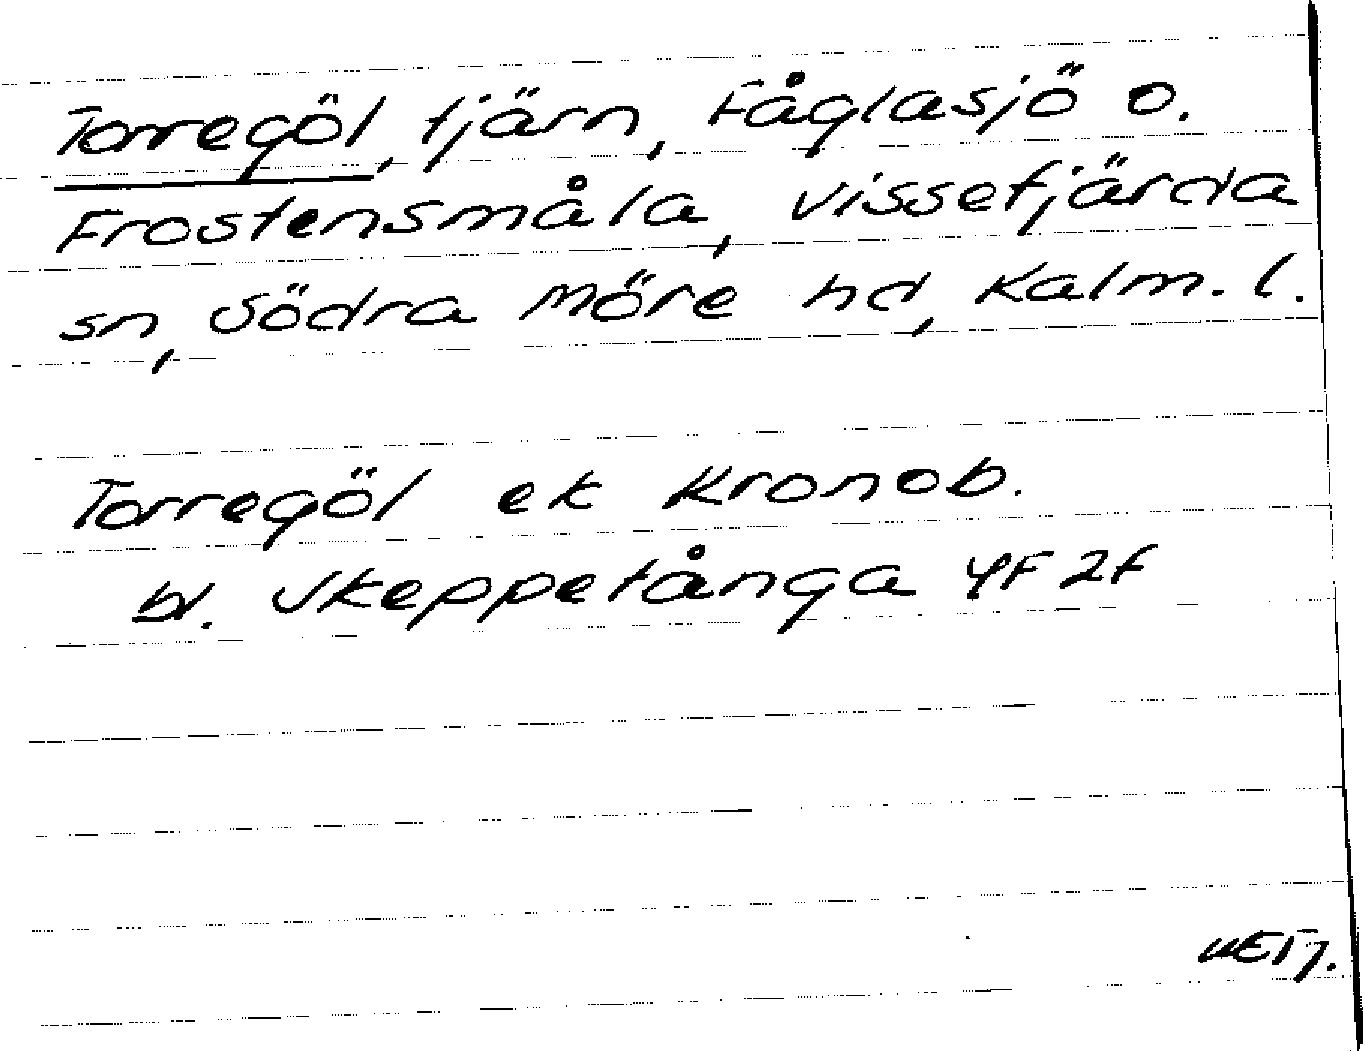 Torregöl, tjärn, Fåglasjö o.
Frostensmåla, Vissefjärda
sn, Södra Möre hd, Kalm. l.
Torregöl ek Kronob.
bl. Skeppetånga 4F 2f